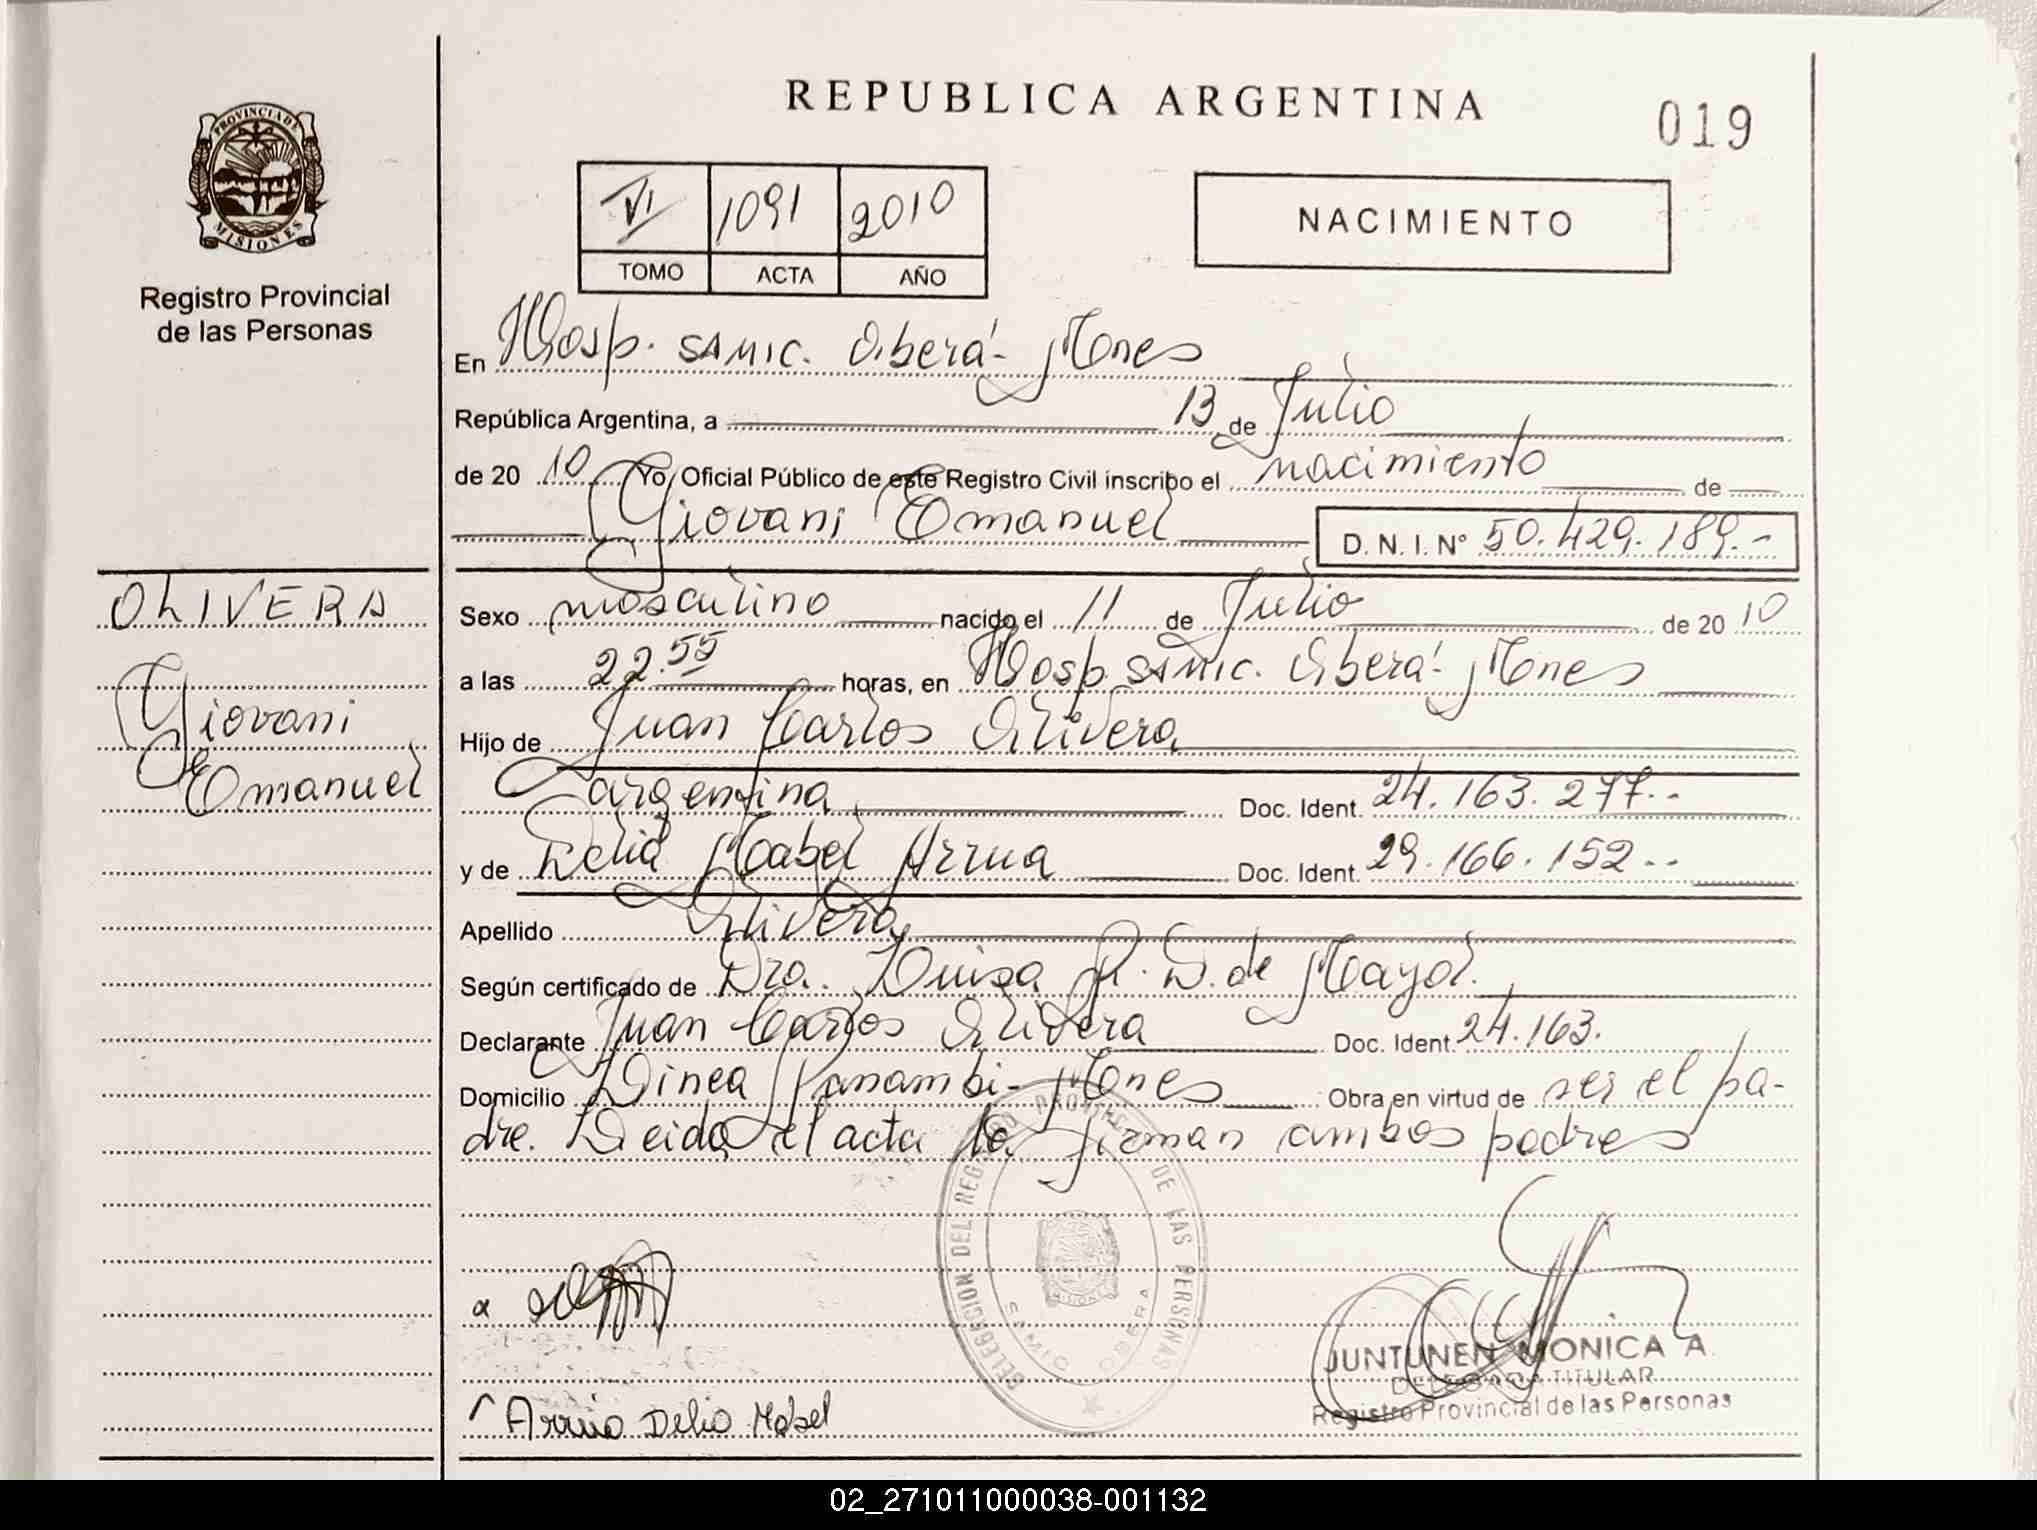 PROVINCIA DE
MISIONES
Registro Provincial
de las Personas
REPUBLICA ARGENTINA
019
VI 1091 2010
TOMO ACTA AÑO
NACIMIENTO
En Hosp. SAMIC. Oberá- Mones
República Argentina, a 13 de Julio
de 2010 Yo, Oficial Público de este Registro Civil inscribo el nacimiento de
Giovani Emanuel D. N. I. Nº 50.429.189.-
OLIVERA
Giovani
Emanuel
Sexo masculino nacido el 11 de Julio de 2010
a las 22.55 horas, en Hosp. SAMIC. Oberá- Mones
Hijo de Juan Carlos Olivera
argentina Doc. Ident. 24.163.277.-
y de Delia Mabel Arrua Doc. Ident. 29.166.152.-
Apellido Olivera
Según certificado de Dra. Luisa R. D. de Mayol.
Declarante Juan Carlos Olivera Doc. Ident. 24.163.
Domicilio Linea Panambi- Mones Obra en virtud de ser el pa-
dre. Leida el acta la firman ambos padres
DELEGACION DEL REGISTRO PROVINCIAL DE LAS PERSONAS
MISIONES
SAMIC OBERA
JUNTUNEN MONICA A.
DELEGADA TITULAR
Registro Provincial de las Personas
Arrua Delia Mabel
02_271011000038-001132